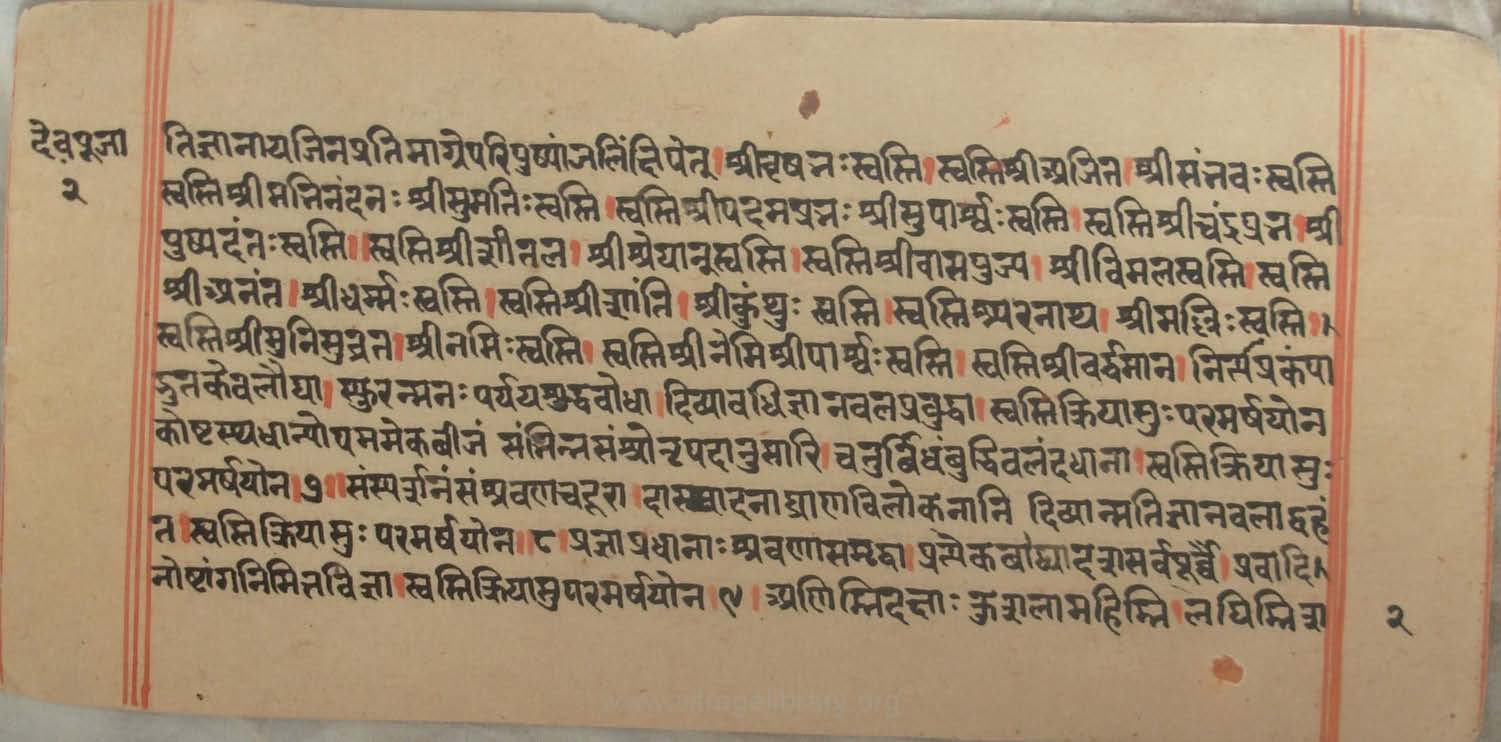 देवपूजा
२
तिज्ञानाय जिनप्रतिमाग्रेपरिपुष्पांजलिंक्षिपेत् । श्रीवृषभः स्वस्ति । स्वस्तिश्रीअजित । श्रीसंभवः स्वस्ति
स्वस्तिश्रीमभिनंदनः श्रीसुमतिः स्वस्ति । स्वस्तिश्रीपदमप्रभः श्रीसुपार्श्वः स्वस्ति । स्वस्तिश्रीचंद्रप्रभ । श्री
पुष्पदंतः स्वस्ति ॥ स्वस्तिश्रीशीतल । श्रीश्रेयान् स्वस्ति । स्वस्तिश्रीवासपुज्य । श्रीविमलस्वस्ति । स्वस्ति
श्रीअनंत । श्रीधर्म्मः स्वस्ति । स्वस्तिश्रीशांति । श्रीकुंथुः स्वस्ति । स्वस्तिअरनाथ । श्रीमल्लिः स्वस्ति ॥
स्वस्तिश्रीमुनिसुव्रत । श्रीनमिः स्वस्ति । स्वस्तिश्रीनेमिश्रीपार्श्वः स्वस्ति । स्वस्तिश्रीवर्द्धमान । नित्यप्रकंपा
द्भुतकेवलौघा । स्फुरन्मनः पर्ययशुद्धबोधा । दिव्यावधिज्ञानबलप्रबुद्धा । स्वस्तिक्रियासुः परमर्षयोन
कोष्टस्थधान्योपममेकबीजं संभिन्नसंश्रोतृपदानुसारि । चतुर्विधंबुद्धिबलंदधाना । स्वस्तिक्रियासुः
परमर्षयोन । ७ ॥ संस्पर्शनंसंश्रवणचदूरा । दास्वादनाघ्राणविलोकनानि दिव्यान्मतिज्ञानबलाद्वहं
त । स्वस्तिक्रियासुः परमर्षयोन ॥ ८ । प्रज्ञाप्रधानाः श्रवणासमृद्धा । प्रत्येकबुद्धादशसर्वपूर्व्वै । प्रवादि
नोष्टांगनिमित्तविज्ञा । स्वस्तिक्रियासुपरमर्षयोन । ९ । अणिम्निदक्षाः कुशलामहिम्नि । लघिम्निश
२
www.jainragelibrary.org